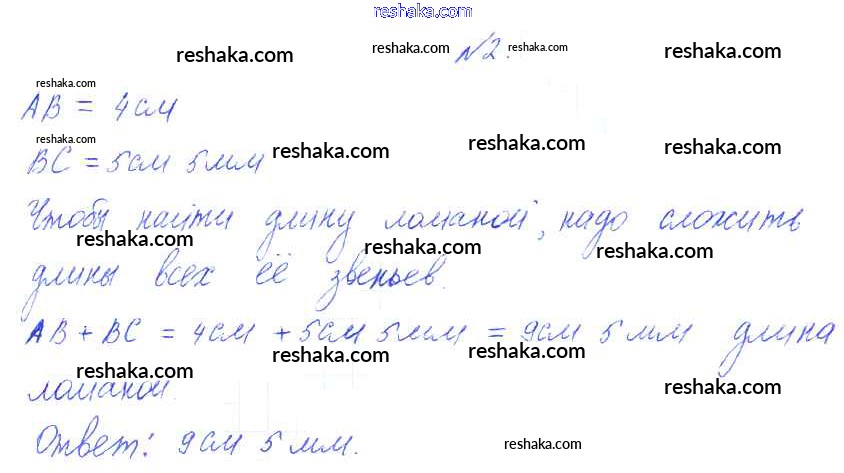 reshaka.com
reshaka.com reshaka.com №2. reshaka.com reshaka.com
reshaka.com
AB = 4см
reshaka.com reshaka.com reshaka.com reshaka.com
BC = 5см 5мм
Чтобы найти длину ломаной, надо сложить
reshaka.com reshaka.com reshaka.com
длины всех её звеньев.
AB + BC = 4см + 5см 5мм = 9см 5мм длина
reshaka.com reshaka.com reshaka.com
ломаной.
Ответ: 9см 5мм.
reshaka.com